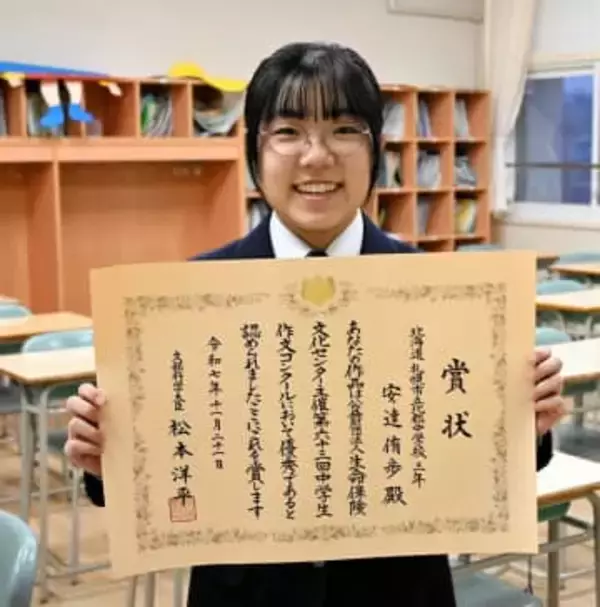 賞状
北海道 札幌市立北都中学校三年
安達 侑歩 殿
あなたの作品は公益財団法人生命保険
文化センター主催第六十三回中学生
作文コンクールにおいて優秀であると
認められましたのでこれを賞します
令和七年十一月二十一日
文部科学大臣 松本洋平